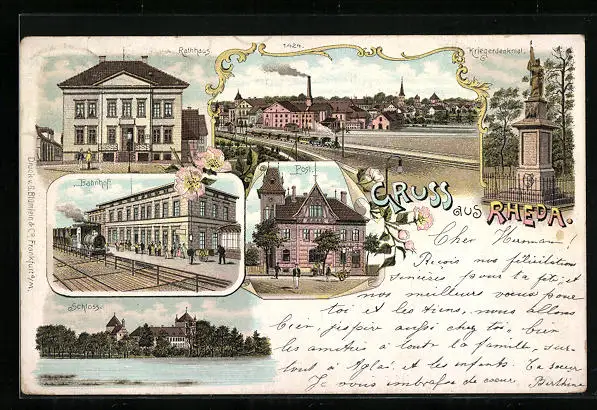 1424.
Rathhaus
Kriegerdenkmal.
Bahnhof
Post.
GRUSS aus RHEDA.
Schloss.
Druck v. G. Blümlein & Co. Frankfurt a/M.
Cher Hermann!
Reçois nos félicitation
sincères pour ta fête, et
nos meilleurs vœux pour
toi et les tiens, nous allons
bien, j'espère aussi chez toi, bien
les amitiés à toute la famille, sur-
tout à Aglaé et les enfants. Ta sœur
Je vous embrasse de cœur, Berthine